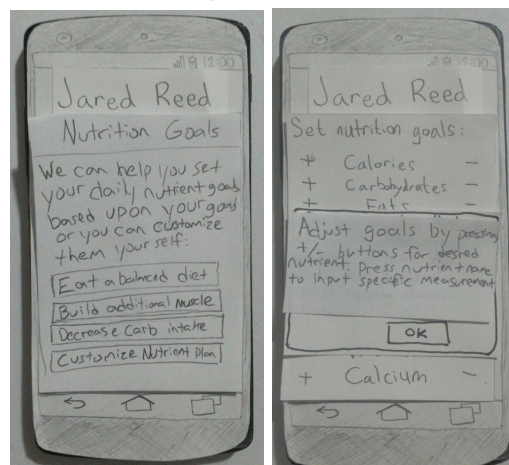 12:00
Jared Reed
Nutrition Goals
We can help you set
your daily nutrient goals
based upon your goals
or you can customize
them your self:
Eat a balanced diet
Build additional Muscle
Decrease Carb intake
Customize Nutrient Plan
12:00
Jared Reed
Set nutrition goals:
+ Calories −
+ Carbohydrates −
+ Fats −
Adjust goals by pressing
+/− buttons for desired
nutrient. Press nutrient name
to input specific measurement
OK
+ Calcium −